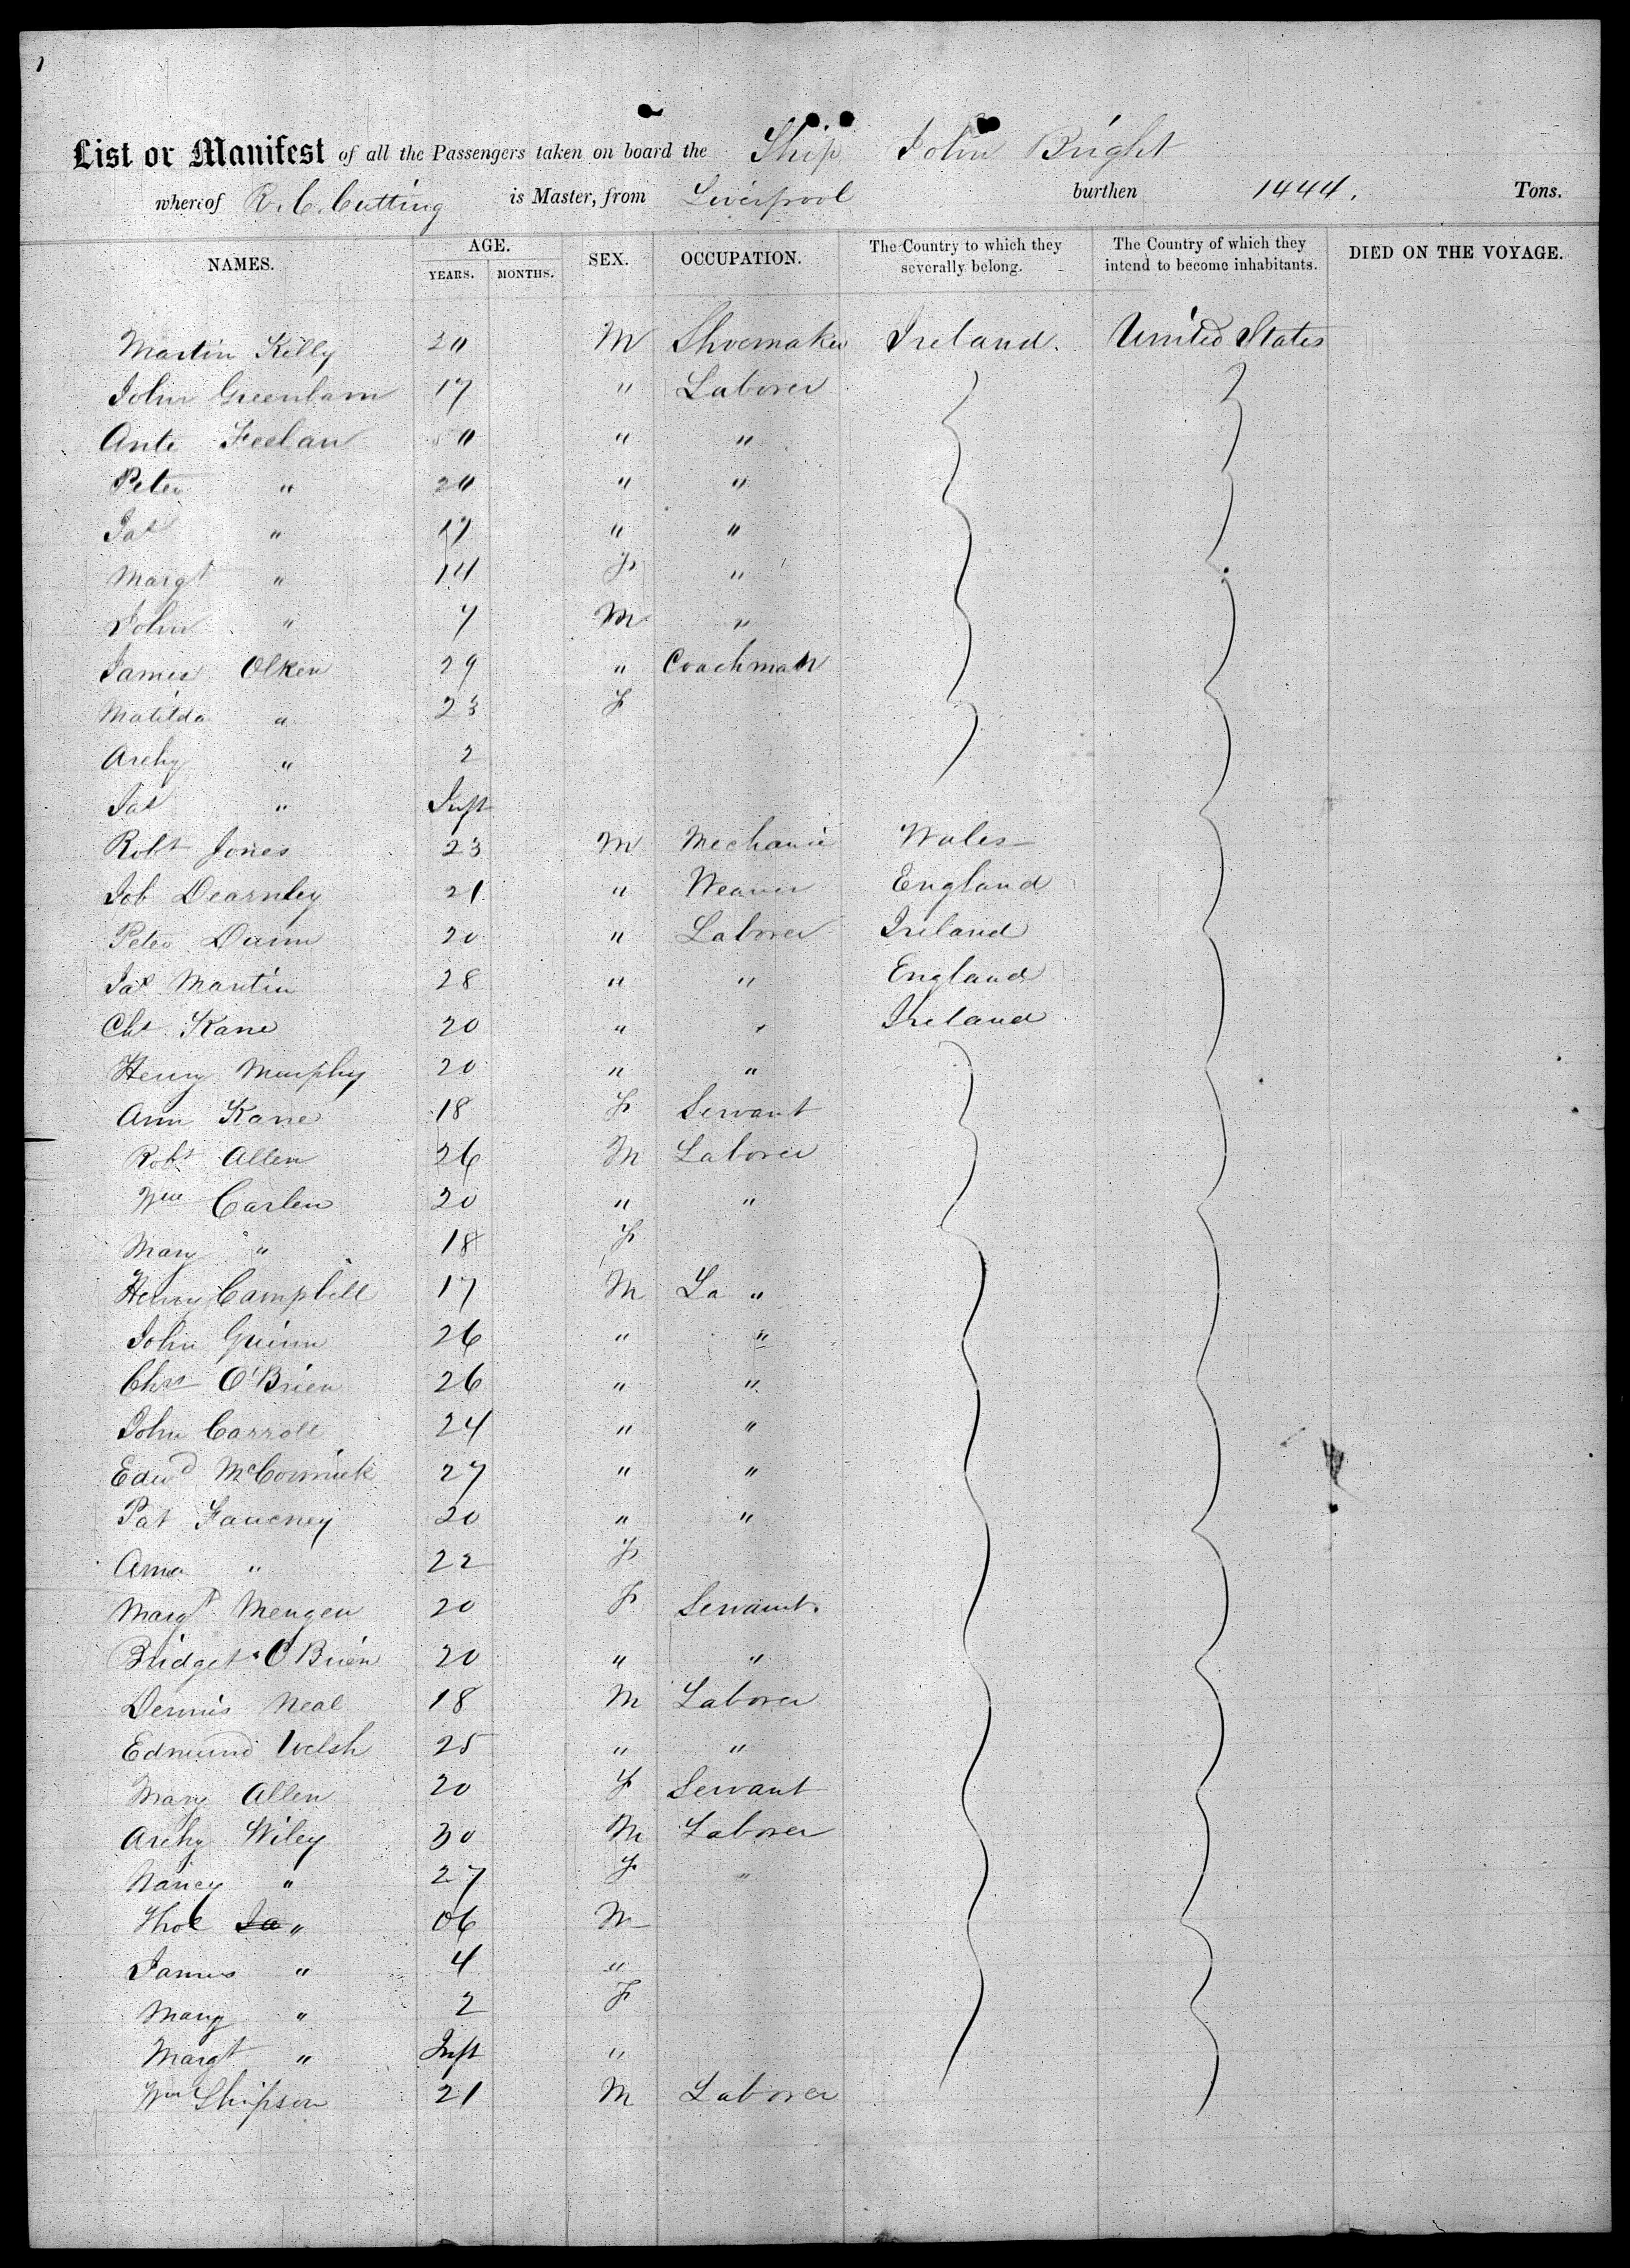 1
List or Manifest of all the Passengers taken on board the Ship John Bright
whereof R. C. Cutting is Master, from Liverpool burthen 1444. Tons.
NAMES. AGE. YEARS. MONTHS. SEX. OCCUPATION. The Country to which they severally belong. The Country of which they intend to become inhabitants. DIED ON THE VOYAGE.
Martin Killy M Shoemaker Ireland. United States
John Greenham 17 " Laborer
Ante Feelan " "
Peter " " "
Jas " 17 " "
Margt " 14 F "
John " 7 M "
James Olken 29 " Coachman
Matilda " 23 F
Archy " 2
Jas " Inft
Robt Jones 23 M Mechanic Wales
Job Dearnley 21 " Weaver England
Peter Dunn 20 " Laborer Ireland
Jas Martin 28 " " England
Chs Kane 20 " " Ireland
Henry Murphy 20 " "
Ann Kane 18 F Servant
Robt Allen 26 M Laborer
Wm Carlen 20 " "
Mary " 18 F
Henry Campbell 17 M La "
John Guinn 26 " "
Chrs O'Brien 26 " "
John Carroll 24 " "
Edwd McCormick 27 " "
Pat 20 " "
" 22 F
Margt Mengen 20 F Servant.
Bridget O'Brien 20 " "
Dennis Neal 18 M Laborer
Edmund Welsh 25 " "
Mary Allen 20 F Servant
Archy Wiley 30 M Laborer
Nancy " 27 F "
" 06 M
James " 4 "
Mary " 2 F
Margt " Inft "
Wm Shipson 21 M Laborer